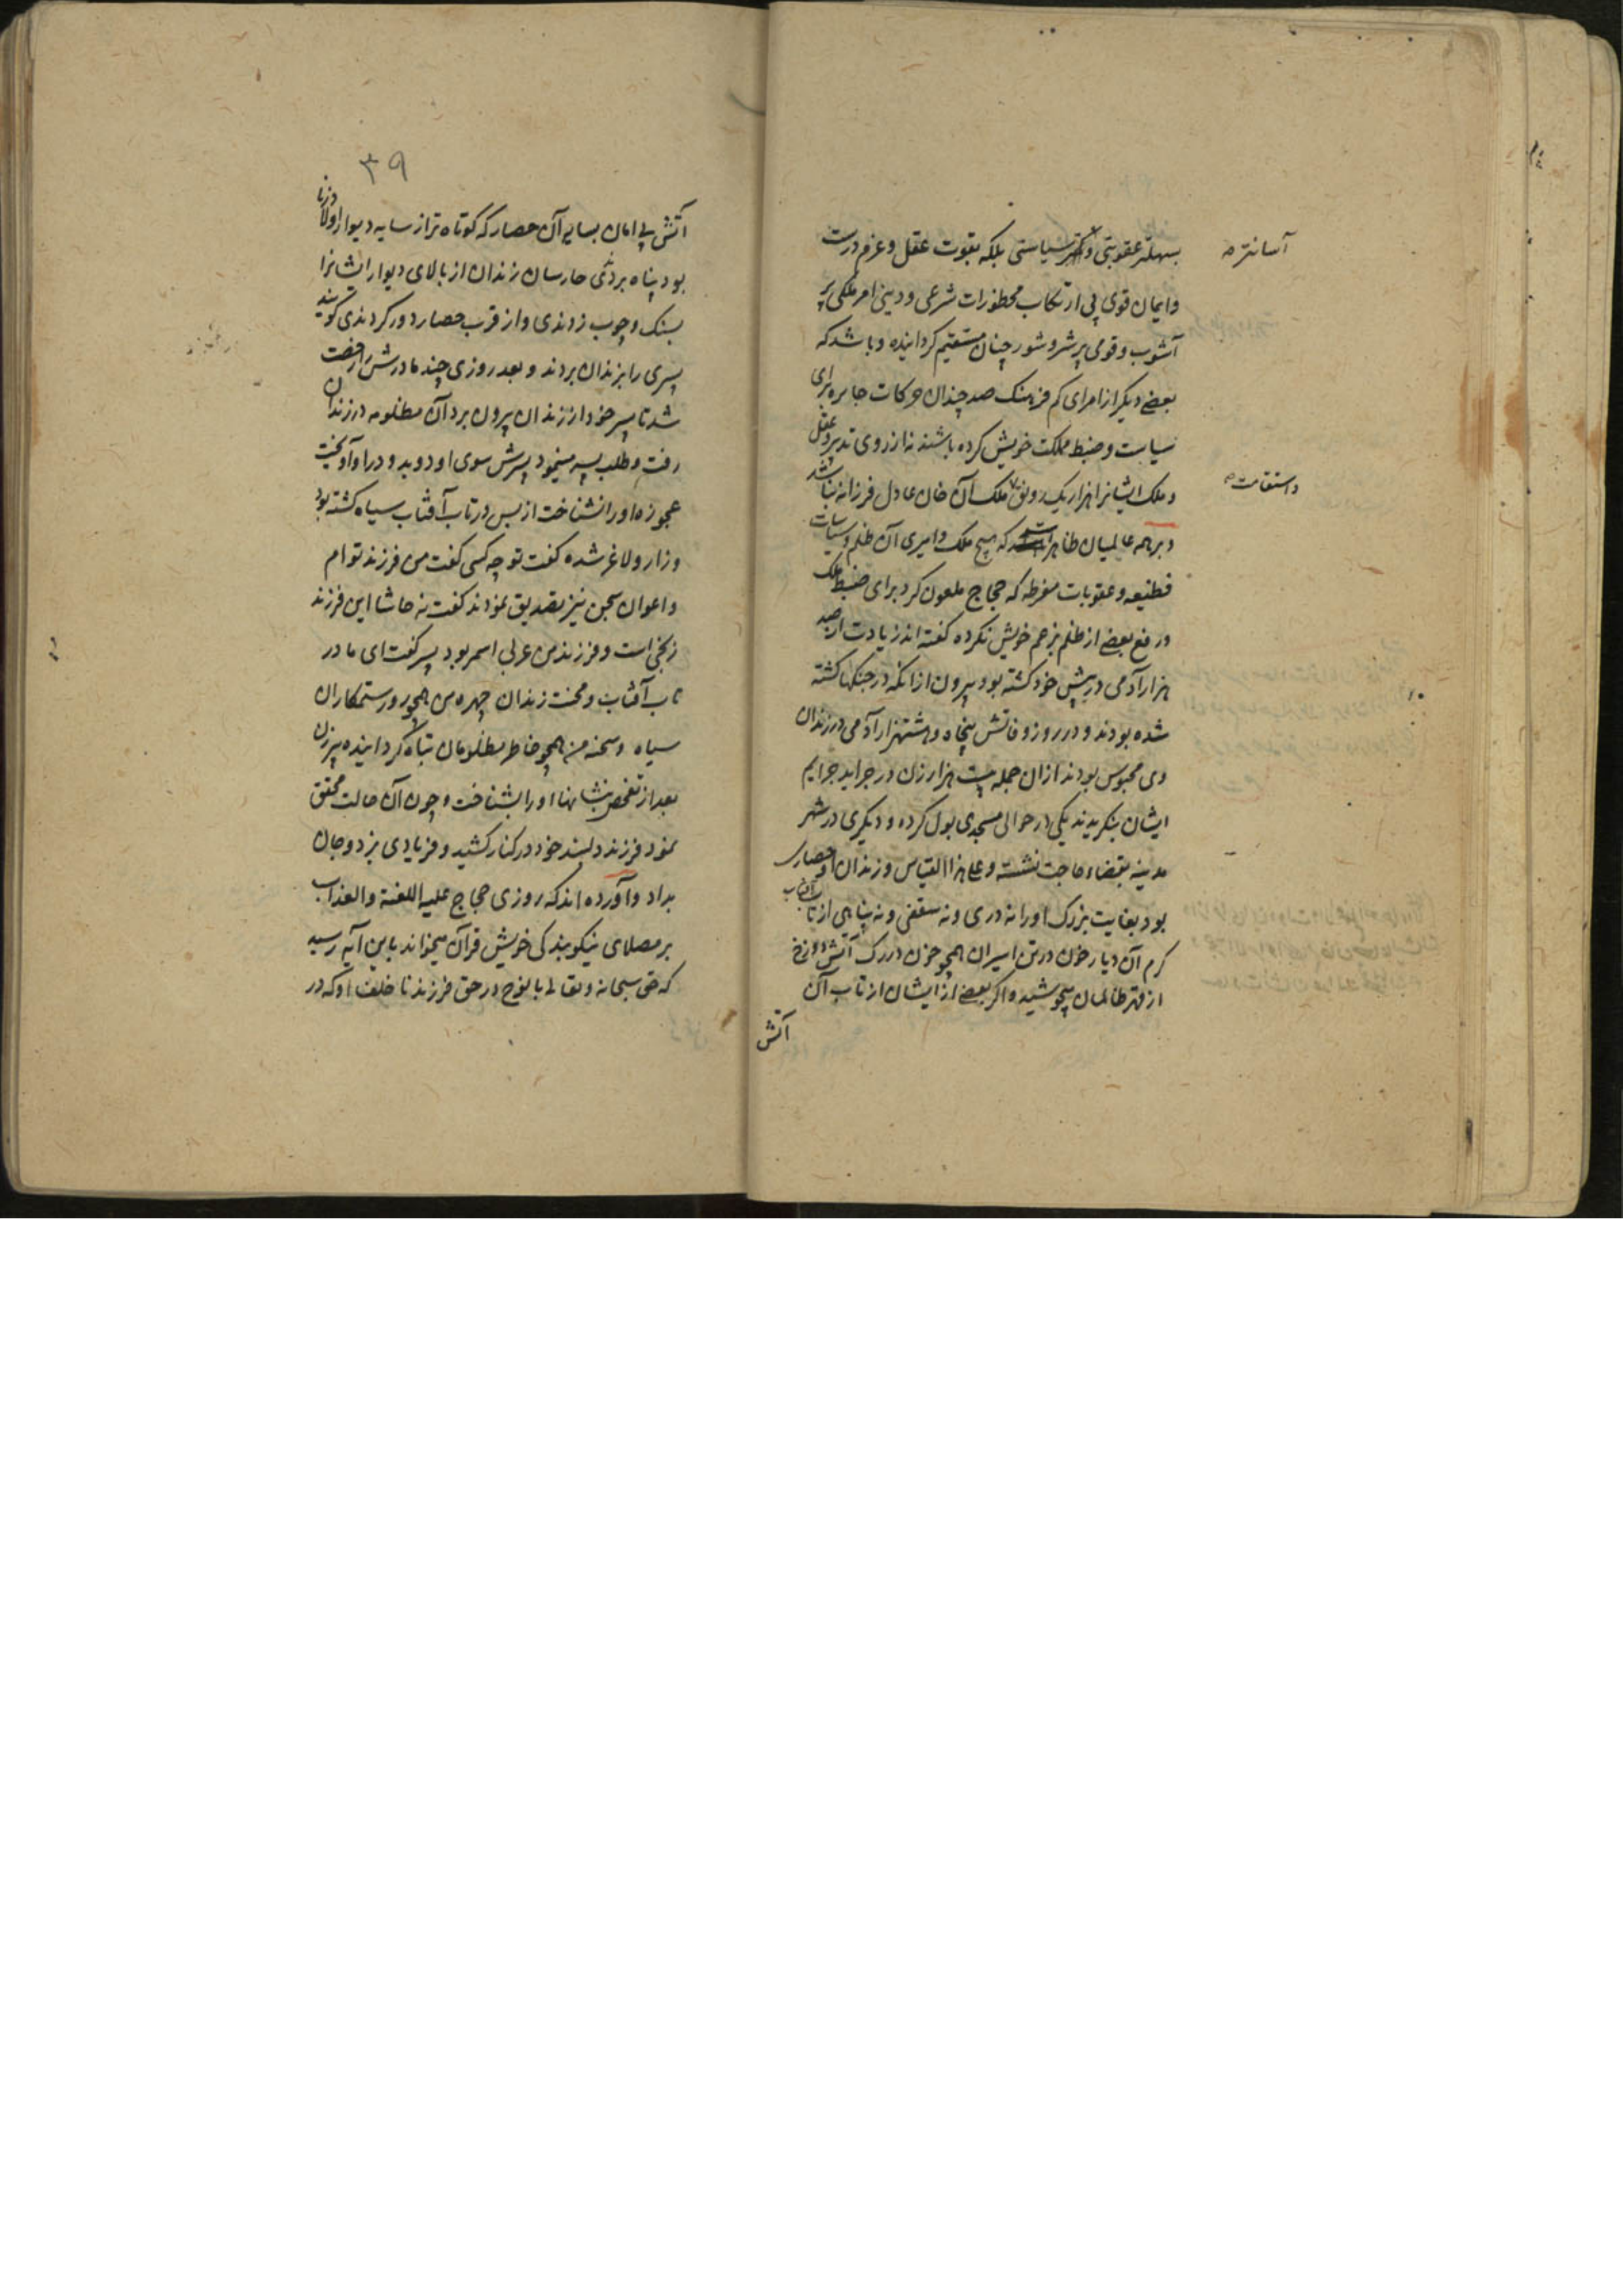 بسهلتر عقوبتی و کمتر سیاستی بلکه بقوت عقل و عزم درست
آسانتره
و ایمان قوی بی ارتکاب محظورات شرعی و دینی امر ملکی پر
آشوب و قومی پر شر و شور چنان مستقیم گردانیده و باشد که
بعضے دیگر از امرای کم فرهنک صد چندان حرکات جابره برای
سیاست و ضبط مملکت خویش کرده باشند نه از روی تدبیر و عقل
و ملک ایشانرا هزار یک رونق ملک آن خان عادل فرزانه نباشد
و استقامت
و برهمه عالمیان ظاهر است که هیچ ملک و امیری آن ظلم و سیاسات
قطیعه و عقوبات مفرطه که حجاج ملعون کرد برای ضبط ملک
و رفع بعضے از ظلم بزعم خویش نکرده گفته اند زیادت از صد
هزار آدمی در پیش خود کشته بود بیرون از انکه در جنکها کشته
شده بودند و در روز وفاتش پنجاه و هشتهزار آدمی در زندان
وی محبوس بودند ازان جمله بیست هزار زن در جراید جرایم
ایشان بنکریدند یکی در حوالی مسجدی بول کرده و دیگری در شهر
مدینه بقضاء حاجت نشسته و علی هذا القیاس و زندان او حصاری
بود بغایت بزرک اورا نه دری و نه سقفی و نه پناهی از تاب آفتاب
کرم آن دیار خون در تن اسیران همچو خون در رک آتش دوزخ
از قهر ظالمان میجوشید و اکر بعضے از ایشان از تاب آن
آتش
۳۹
آتش بی امان بسایهٔ آن حصار که کوتاه تر از سایه دیوار اولاد زنا
بود پناه بردی حارسان زندان از بالای دیوار ایشانرا
بسنک و چوب زدندی و از قرب حصار دور کردندی کویند
پسری را بزندان بردند و بعد روزی چند مادرش را رخصت
شد تا پسر خود از زندان بیرون برد آن مظلومه در زندان
رفت و طلب پسر مینمود پسرش سوی او دوید و در او آویخت
عجوزه اورا نشناخت از بس در تاب آفتاب سیاه کشته بود
و زار و لاغر شده کفت تو چه کسی کفت من فرزند توام
و اعوان سجن نیز تصدیق نمودند کفت نه حاشا این فرزند
زنجی است و فرزند من عربی اسمر بود پسر کفت ای مادر
تاب آفتاب و محنت زندان چهره من همچو روز ستمکاران
سیاه و سحنه من همچو خاطر مظلومان تباه کردانیده پیرزن
بعد از تفحص نشانها اورا بشناخت و چون آن حالت محقق
نمود فرزند دلبند خود در کنار کشید و فریادی بزد و جان
بداد و آورده اند که روزی حجاج علیه اللعنة والعذاب
بر مصلای خویش قرآن میخواند باین آیه رسید
که حق سبحانه و تعالی با نوح در حق فرزند نا خلف او که در